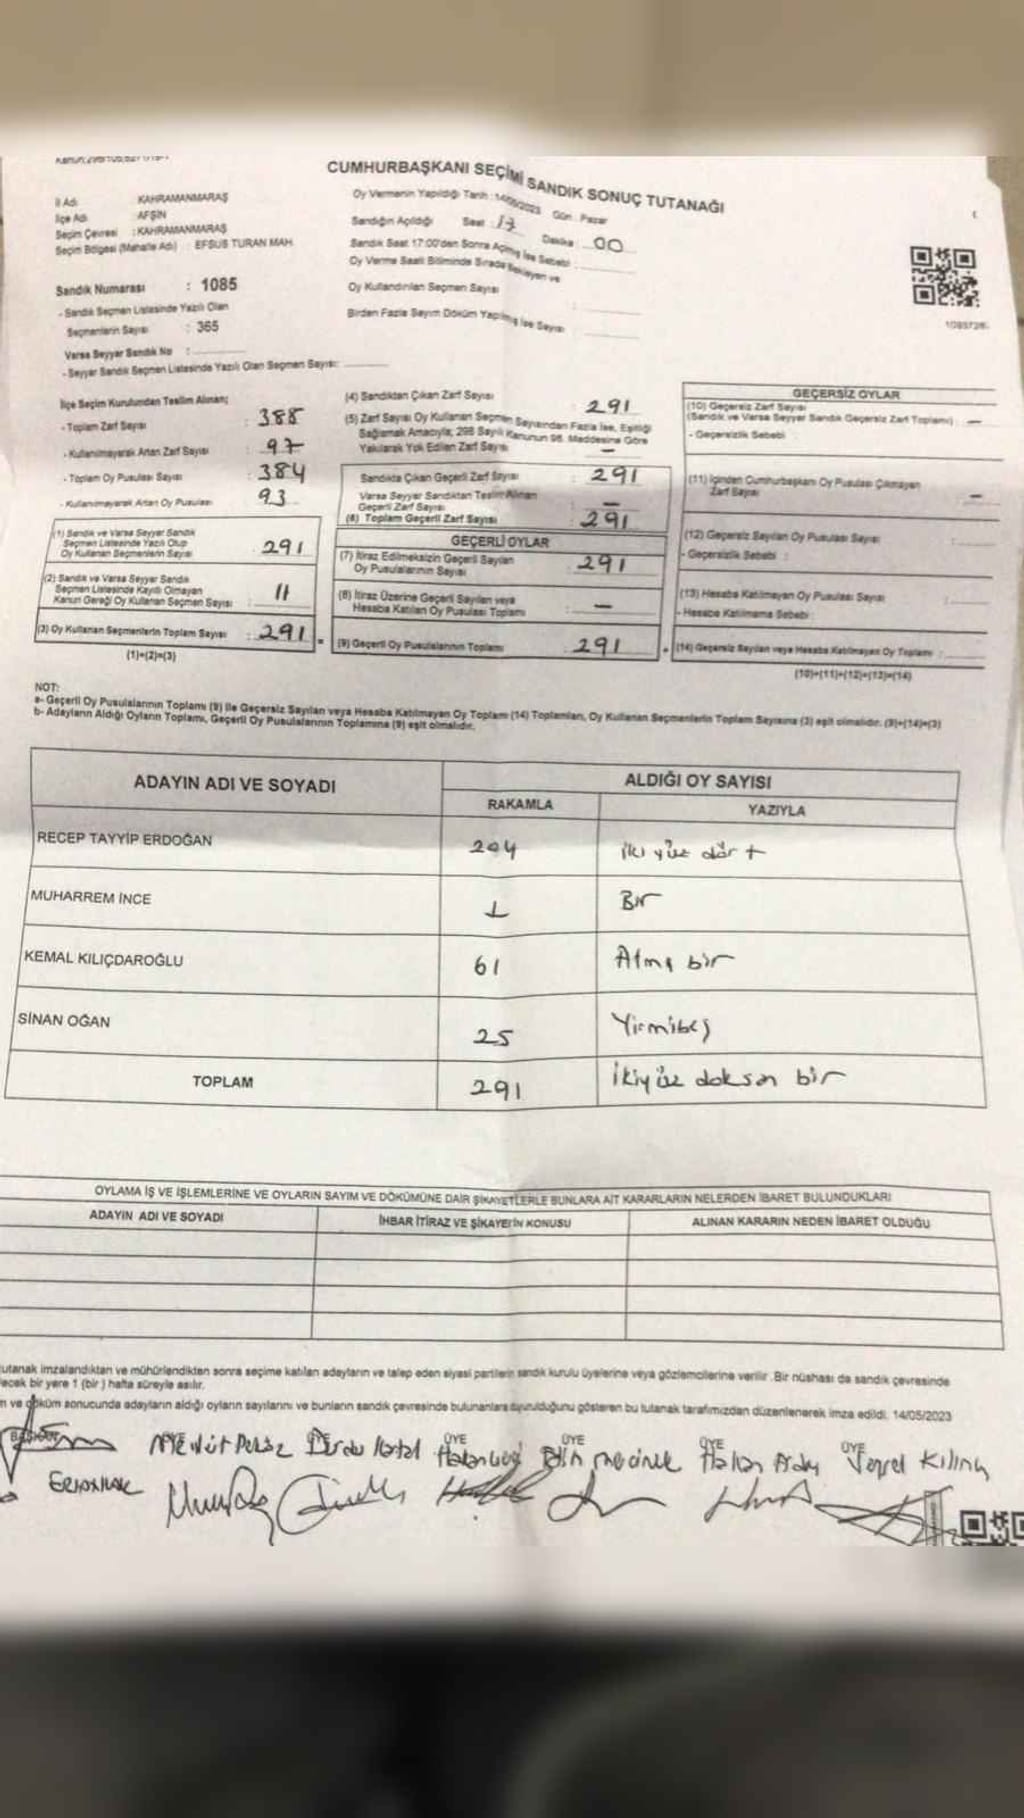 CUMHURBAŞKANI SEÇİMİ SANDIK SONUÇ TUTANAĞI
İl Adı : KAHRAMANMARAŞ
İlçe Adı : AFŞİN
Seçim Çevresi : KAHRAMANMARAŞ
Seçim Bölgesi (Mahalle Adı) : EFSUS TURAN MAH.
Oy Vermenin Yapıldığı Tarih : 14/05/2023 Gün : Pazar
Sandığın Açıldığı Saat : 17 Dakika : 00
Sandık Saat 17:00'den Sonra Açılmış İse Sebebi :
Oy Verme Saati Bitiminde Sırada Bekleyen ve
Oy Kullandırılan Seçmen Sayısı :
Birden Fazla Sayım Döküm Yapılmış İse Sayısı
Sandık Numarası : 1085
- Sandık Seçmen Listesinde Yazılı Olan
Seçmenlerin Sayısı : 365
Varsa Seyyar Sandık No :
- Seyyar Sandık Seçmen Listesinde Yazılı Olan Seçmen Sayısı:
İlçe Seçim Kurulundan Teslim Alınan;
- Toplam Zarf Sayısı : 388
- Kullanılmayarak Artan Zarf Sayısı : 97
- Toplam Oy Pusulası Sayısı : 384
- Kullanılmayarak Artan Oy Pusulası 93
(1) Sandık ve Varsa Seyyar Sandık
Seçmen Listesinde Yazılı Olup
Oy Kullanan Seçmenlerin Sayısı : 291
(2) Sandık ve Varsa Seyyar Sandık
Seçmen Listesinde Kayıtlı Olmayan
Kanun Gereği Oy Kullanan Seçmen Sayısı : 11
(3) Oy Kullanan Seçmenlerin Toplam Sayısı : 291
(1)+(2)=(3)
(4) Sandıktan Çıkan Zarf Sayısı 291
(5) Zarf Sayısı Oy Kullanan Seçmen Sayısından Fazla İse, Eşitliği
Sağlamak Amacıyla; 298 Sayılı Kanunun 98. Maddesine Göre
Yakılarak Yok Edilen Zarf Sayısı –
Sandıkta Çıkan Geçerli Zarf Sayısı 291
Varsa Seyyar Sandıktan Teslim Alınan
Geçerli Zarf Sayısı –
(6) Toplam Geçerli Zarf Sayısı 291
GEÇERLİ OYLAR
(7) İtiraz Edilmeksizin Geçerli Sayılan
Oy Pusulalarının Sayısı 291
(8) İtiraz Üzerine Geçerli Sayılan veya
Hesaba Katılan Oy Pusulası Toplamı : –
(9) Geçerli Oy Pusulalarının Toplamı : 291
GEÇERSİZ OYLAR
(10) Geçersiz Zarf Sayısı
(Sandık ve Varsa Seyyar Sandık Geçersiz Zarf Toplamı) : –
- Geçersizlik Sebebi :
(11) İçinden Cumhurbaşkanı Oy Pusulası Çıkmayan
Zarf Sayısı –
(12) Geçersiz Sayılan Oy Pusulası Sayısı :
- Geçersizlik Sebebi :
(13) Hesaba Katılmayan Oy Pusulası Sayısı :
- Hesaba Katılmama Sebebi :
(14) Geçersiz Sayılan veya Hesaba Katılmayan Oy Toplamı :
(10)+(11)+(12)+(13)=(14)
NOT:
a- Geçerli Oy Pusulalarının Toplamı (9) ile Geçersiz Sayılan veya Hesaba Katılmayan Oy Toplam (14) Toplamları, Oy Kullanan Seçmenlerin Toplam Sayısına (3) eşit olmalıdır. (9)+(14)=(3)
b- Adayların Aldığı Oyların Toplamı, Geçerli Oy Pusulalarının Toplamına (9) eşit olmalıdır.
ADAYIN ADI VE SOYADI ALDIĞI OY SAYISI
RAKAMLA YAZIYLA
RECEP TAYYİP ERDOĞAN 204 iki yüz dört
MUHARREM İNCE 1 Bir
KEMAL KILIÇDAROĞLU 61 Atmış bir
SİNAN OĞAN 25 Yirmibeş
TOPLAM 291 İkiyüz doksan bir
OYLAMA İŞ VE İŞLEMLERİNE VE OYLARIN SAYIM VE DÖKÜMÜNE DAİR ŞİKAYETLERLE BUNLARA AİT KARARLARIN NELERDEN İBARET BULUNDUKLARI
ADAYIN ADI VE SOYADI İHBAR İTİRAZ VE ŞİKAYETİN KONUSU ALINAN KARARIN NEDEN İBARET OLDUĞU
utanak imzalandıktan ve mühürlendikten sonra seçime katılan adayların ve talep eden siyasi partilerin sandık kurulu üyelerine veya gözlemcilerine verilir .Bir nüshası da sandık çevresinde
ecek bir yere 1 (bir ) hafta süreyle asılır.
m ve döküm sonucunda adayların aldığı oyların sayılarını ve bunların sandık çevresinde bulunanlara duyurulduğunu gösteren bu tutanak tarafımızdan düzenlenerek imza edildi. 14/05/2023
BAŞKAN ÜYE ÜYE ÜYE ÜYE
Mevlüt Hakan Veysel Kılınç